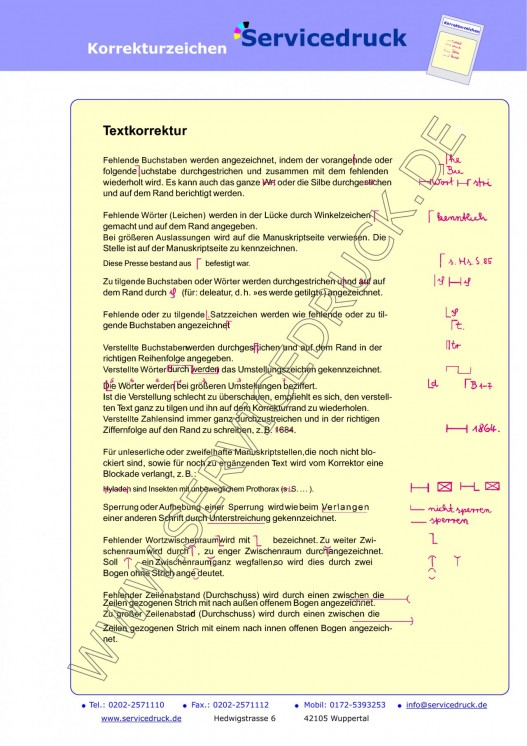 Korrekturzeichen
Servicedruck
Korrekturzeichen
Textkorrektur
Fehlende Buchstaben werden angezeichnet, indem der vorangehnde oder
folgende uchstabe durchgestrichen und zusammen mit dem fehlenden
wiederholt wird. Es kann auch das ganze Wrt oder die Silbe durchgestrichen
und auf dem Rand berichtigt werden.
he
Bu
Wort stri
Fehlende Wörter (Leichen) werden in der Lücke durch Winkelzeichen
gemacht und auf dem Rand angegeben.
kenntlich
Bei größeren Auslassungen wird auf die Manuskriptseite verwiesen. Die
Stelle ist auf der Manuskriptseite zu kennzeichnen.
Diese Presse bestand aus befestigt war.
s. Hs. S. 85
Zu tilgende Buchstaben oder Wörter werden durchgestrichen uhnd auf auf
dem Rand durch (für: deleatur, d. h. »es werde getilgt«) angezeichnet.
Fehlende oder zu tilgende Satzzeichen werden wie fehlende oder zu til-
gende Buchstaben angezeichnet
t.
Verstellte Buchstabenwerden durchgestrichen und auf dem Rand in der
richtigen Reihenfolge angegeben.
tr
Verstellte Wörter durch werden das Umstellungszeichen gekennzeichnet.
Die Wörter werden bei größeren Umstellungen beziffert.
d B 1-7
Ist die Verstellung schlecht zu überschauen, empfiehlt es sich, den verstell-
ten Text ganz zu tilgen und ihn auf dem Korrekturrand zu wiederholen.
Verstellte Zahlensind immer ganz durchzustreichen und in der richtigen
Ziffernfolge auf den Rand zu schreiben, z. B. 1684.
1864.
Für unleserliche oder zweifelhafte Manuskriptstellen,die noch nicht blo-
ckiert sind, sowie für noch zu ergänzenden Text wird vom Korrektor eine
Blockade verlangt, z. B.:
Hyladen sind Insekten mit unbeweglichem Prothorax (s. S. . . . ).
Sperrung oder Aufhebung einer Sperrung wird wie beim Verlangen
einer anderen Schrift durch Unterstreichung gekennzeichnet.
nicht sperren
sperren
Fehlender Wortzwischenraum wird mit bezeichnet. Zu weiter Zwi-
schenraum wird durch , zu enger Zwischenraum durch angezeichnet.
Soll ein Zwischenraum ganz wegfallen,so wird dies durch zwei
Bogen ohne Strich ange deutet.
Fehlender Zeilenabstand (Durchschuss) wird durch einen zwischen die
Zeilen gezogenen Strich mit nach außen offenem Bogen angezeichnet.
Zu großer Zeilenabstand (Durchschuss) wird durch einen zwischen die
Zeilen gezogenen Strich mit einem nach innen offenen Bogen angezeich-
net.
WWW.SERVICEDRUCK.DE
Tel.: 0202-2571110 Fax.: 0202-2571112 Mobil: 0172-5393253 info@servicedruck.de
www.servicedruck.de Hedwigstrasse 6 42105 Wuppertal